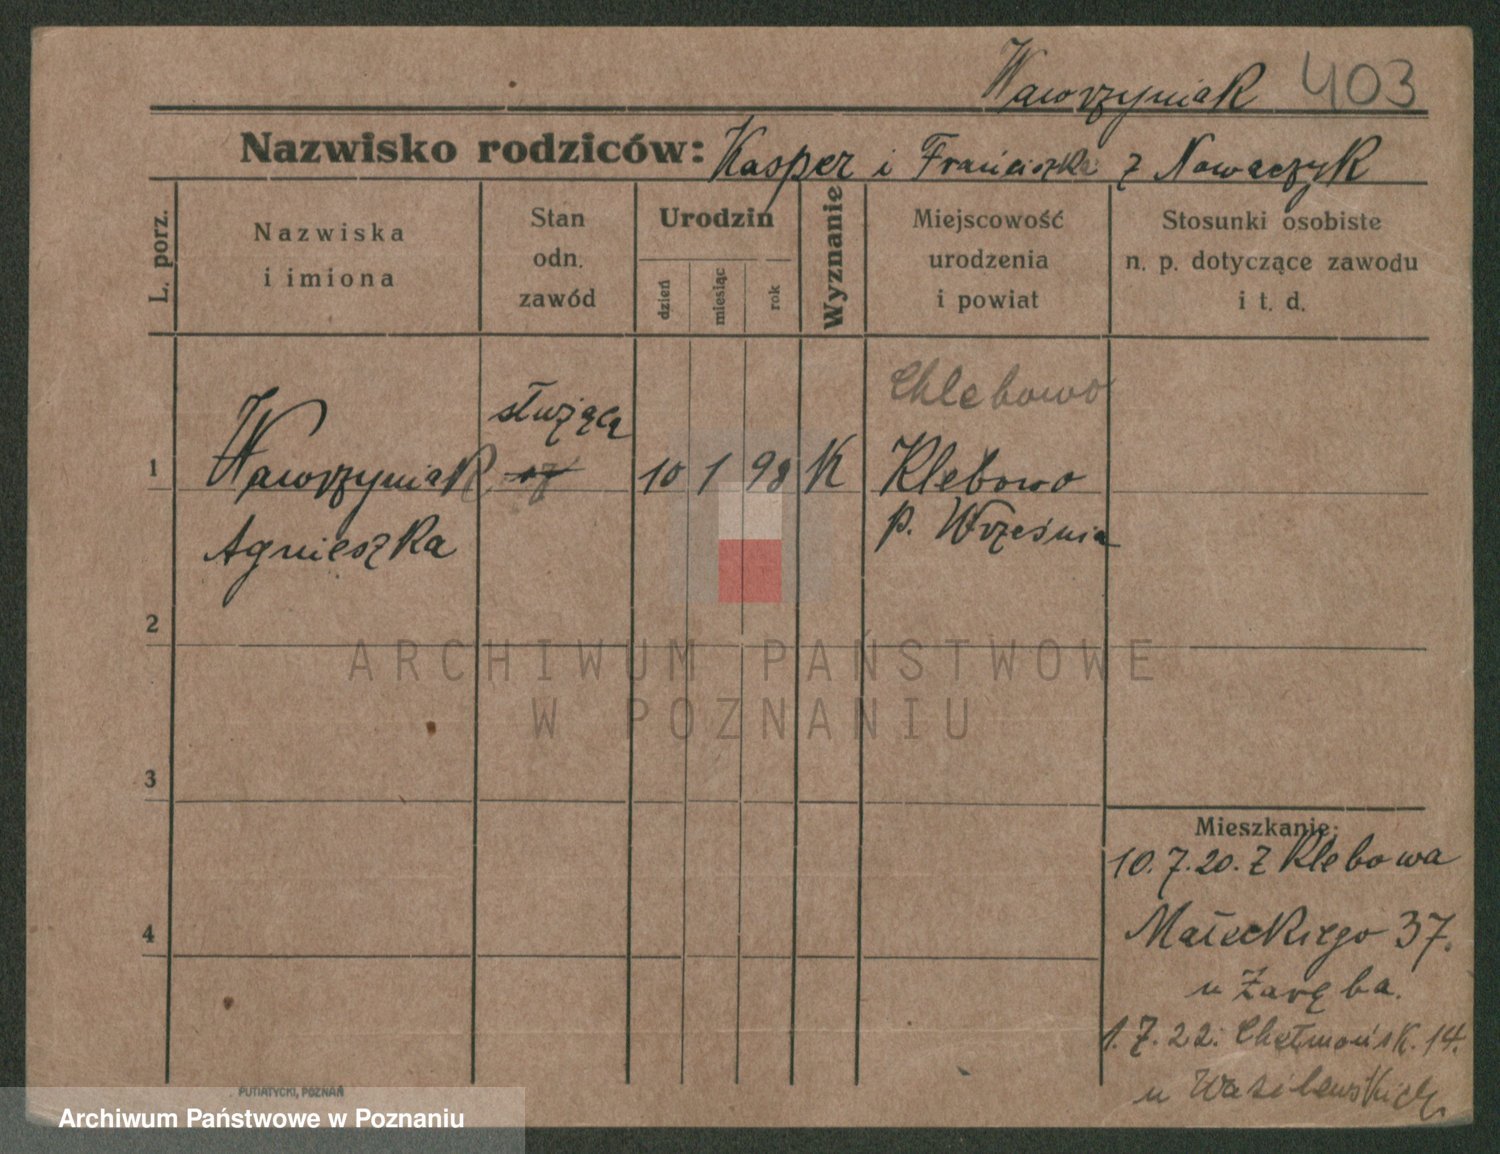 Wawrzyniak 403
Nazwisko rodziców: Kasper i Franciszka z Nowaczyk
L. porz.
Nazwiska
i imiona
Stan
odn.
zawód
Urodzin
dzień
miesiąc
rok
Wyznanie
Miejscowość
urodzenia
i powiat
Stosunki osobiste
n. p. dotyczące zawodu
i t. d.
Chlebowo
służąca
1 Wawrzyniak 10 1 98 K Klebowo
Agnieszka p. Września
2
ARCHIWUM PAŃSTWOWE
W POZNANIU
3
Mieszkanie:
10.7.20. z Klebowa
4 Małeckiego 37.
u Zaręba.
1.7.22. Chełmońsk. 14.
u Wasilewskich
PUTIATYCKI, POZNAŃ
Archiwum Państwowe w Poznaniu